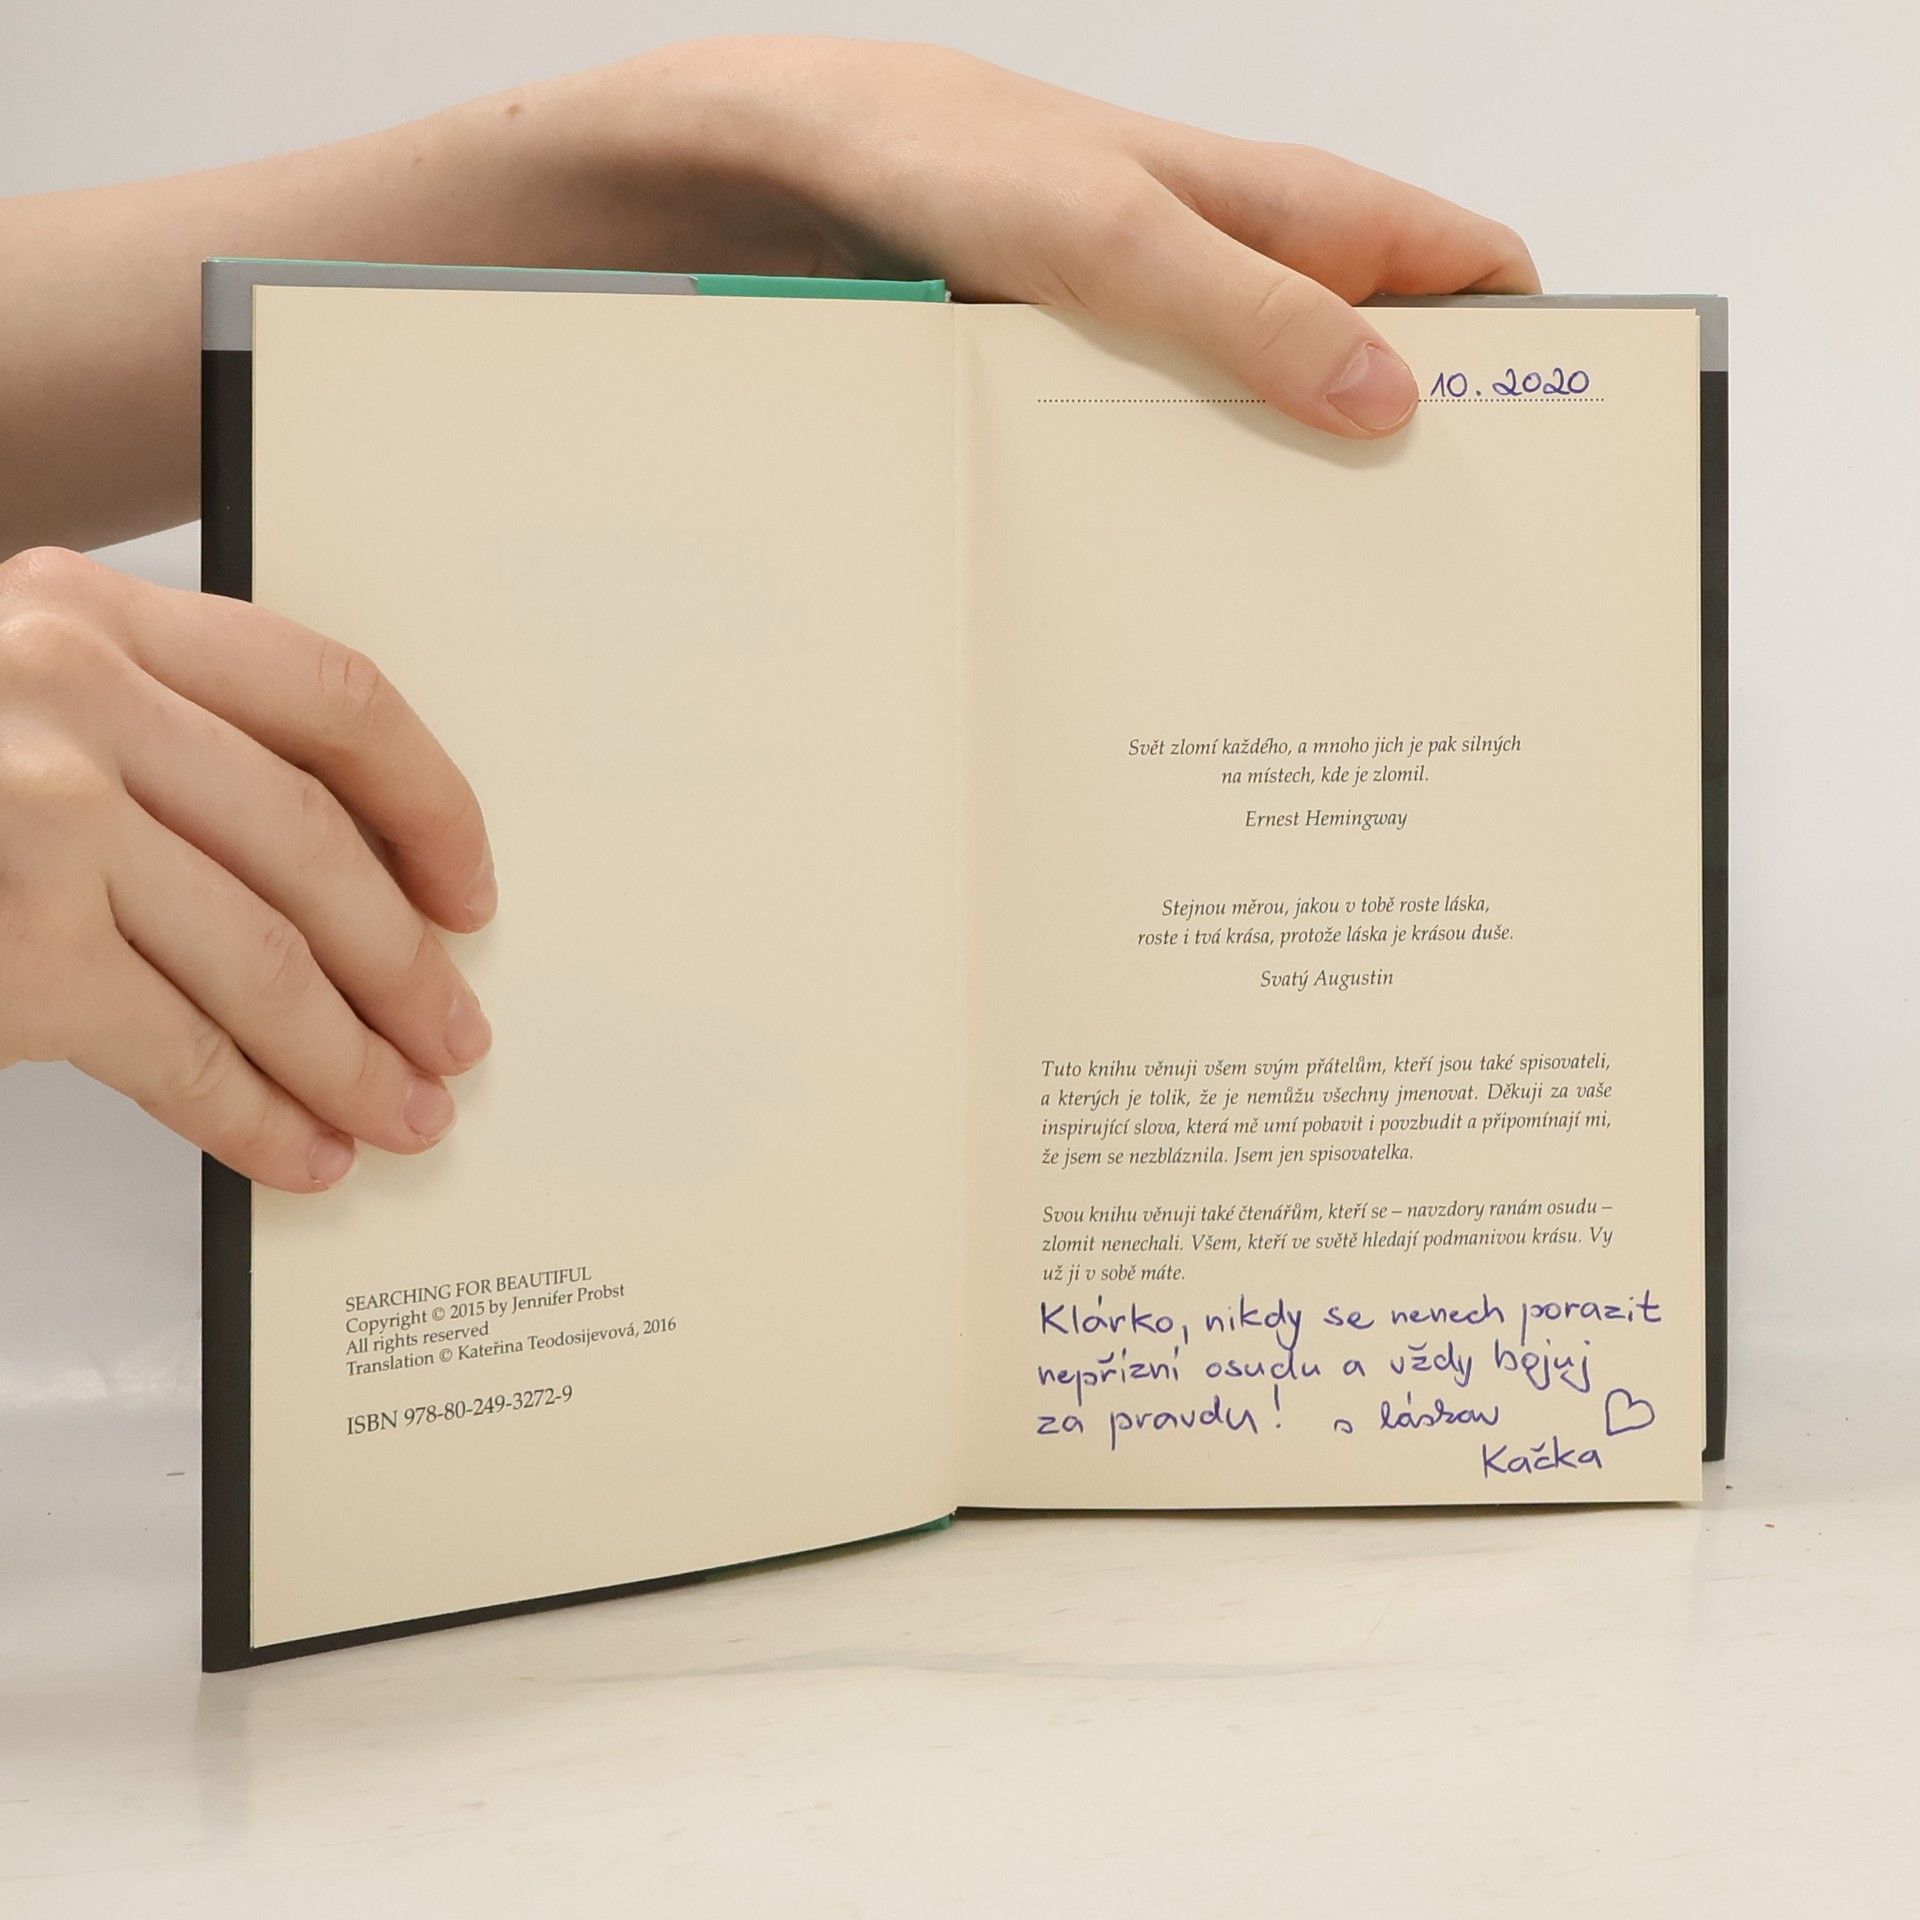 SEARCHING FOR BEAUTIFUL
Copyright © 2015 by Jennifer Probst
All rights reserved
Translation © Kateřina Teodosijevová, 2016
ISBN 978-80-249-3272-9
10. 2020
Svět zlomí každého, a mnoho jich je pak silných
na místech, kde je zlomil.
Ernest Hemingway
Stejnou měrou, jakou v tobě roste láska,
roste i tvá krása, protože láska je krásou duše.
Svatý Augustin
Tuto knihu věnuji všem svým přátelům, kteří jsou také spisovateli,
a kterých je tolik, že je nemůžu všechny jmenovat. Děkuji za vaše
inspirující slova, která mě umí pobavit i povzbudit a připomínají mi,
že jsem se nezbláznila. Jsem jen spisovatelka.
Svou knihu věnuji také čtenářům, kteří se – navzdory ranám osudu –
zlomit nenechali. Všem, kteří ve světě hledají podmanivou krásu. Vy
už ji v sobě máte.
Klárko, nikdy se nenech porazit
nepřízní osudu a vždy bojuj
za pravdu! s láskou
Kačka